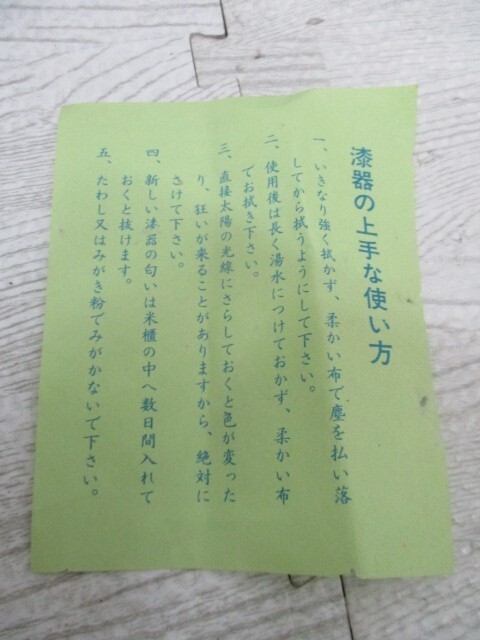 漆器の上手な使い方
一、いきなり強く拭かず、柔かい布で塵を払い落
してから拭うようにして下さい。
二、使用後は長く湯水につけておかず、柔かい布
でお拭き下さい。
三、直接太陽の光線にさらしておくと色が変った
り、狂いが来ることがありますから、絶対に
さけて下さい。
四、新しい漆器の匂いは米櫃の中へ数日間入れて
おくと抜けます。
五、たわし又はみがき粉でみがかないで下さい。